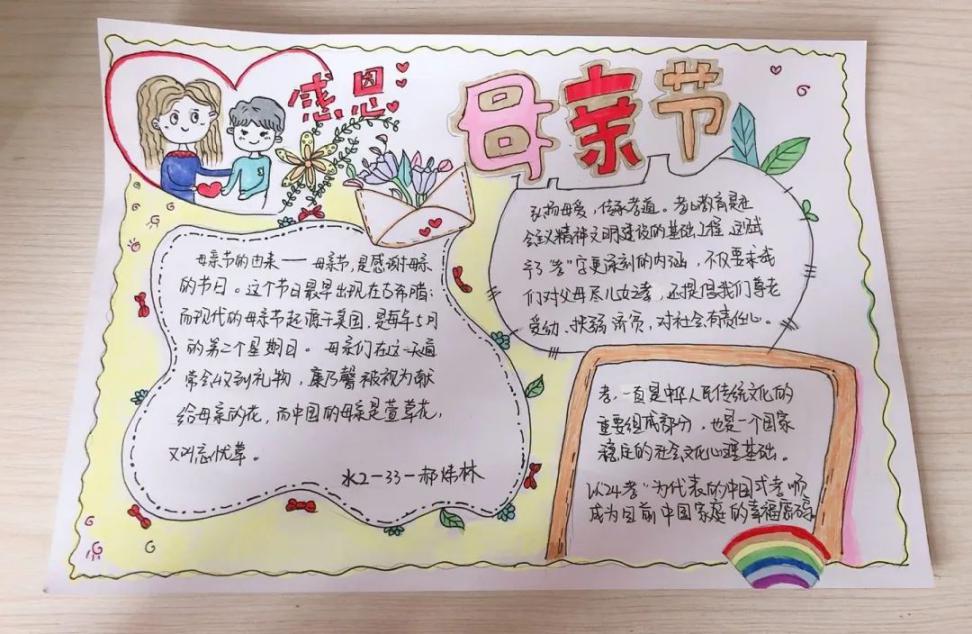 感恩
母亲节
母亲节的由来——母亲节,是感谢母亲
的节日。这个节日最早出现在古希腊;
而现代的母亲节起源于美国,是每年5月
的第二个星期日。母亲们在这一天通
常会收到礼物,康乃馨被视为献
给母亲的花,而中国的母亲是萱草花,
又叫忘忧草。
水2-33-郝炜林
弘扬母爱,传承孝道。孝心教育是社
会主义精神文明建设的基础工程,这赋
予了"孝"字更深刻的内涵,不仅要求我
们对父母尽儿女之孝,还提倡我们尊老
爱幼、扶弱济贫,对社会有责任心。
孝,一直是中华人民传统文化的
重要组成部分,也是一个国家
稳定的社会文化心理基础。
以24孝"为代表的中国式孝顺
成为目前中国家庭的幸福源